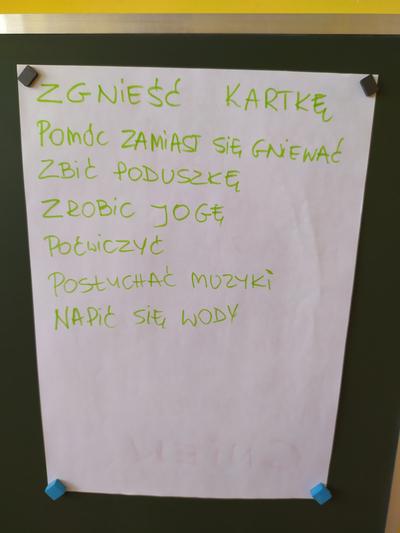 ZGNIEŚĆ KARTKĘ
POMÓC ZAMIAST SIĘ GNIEWAĆ
ZBIĆ PODUSZKĘ
ZROBIĆ JOGĘ
POĆWICZYĆ
POSŁUCHAĆ MUZYKI
NAPIĆ SIĘ WODY
GNIEW